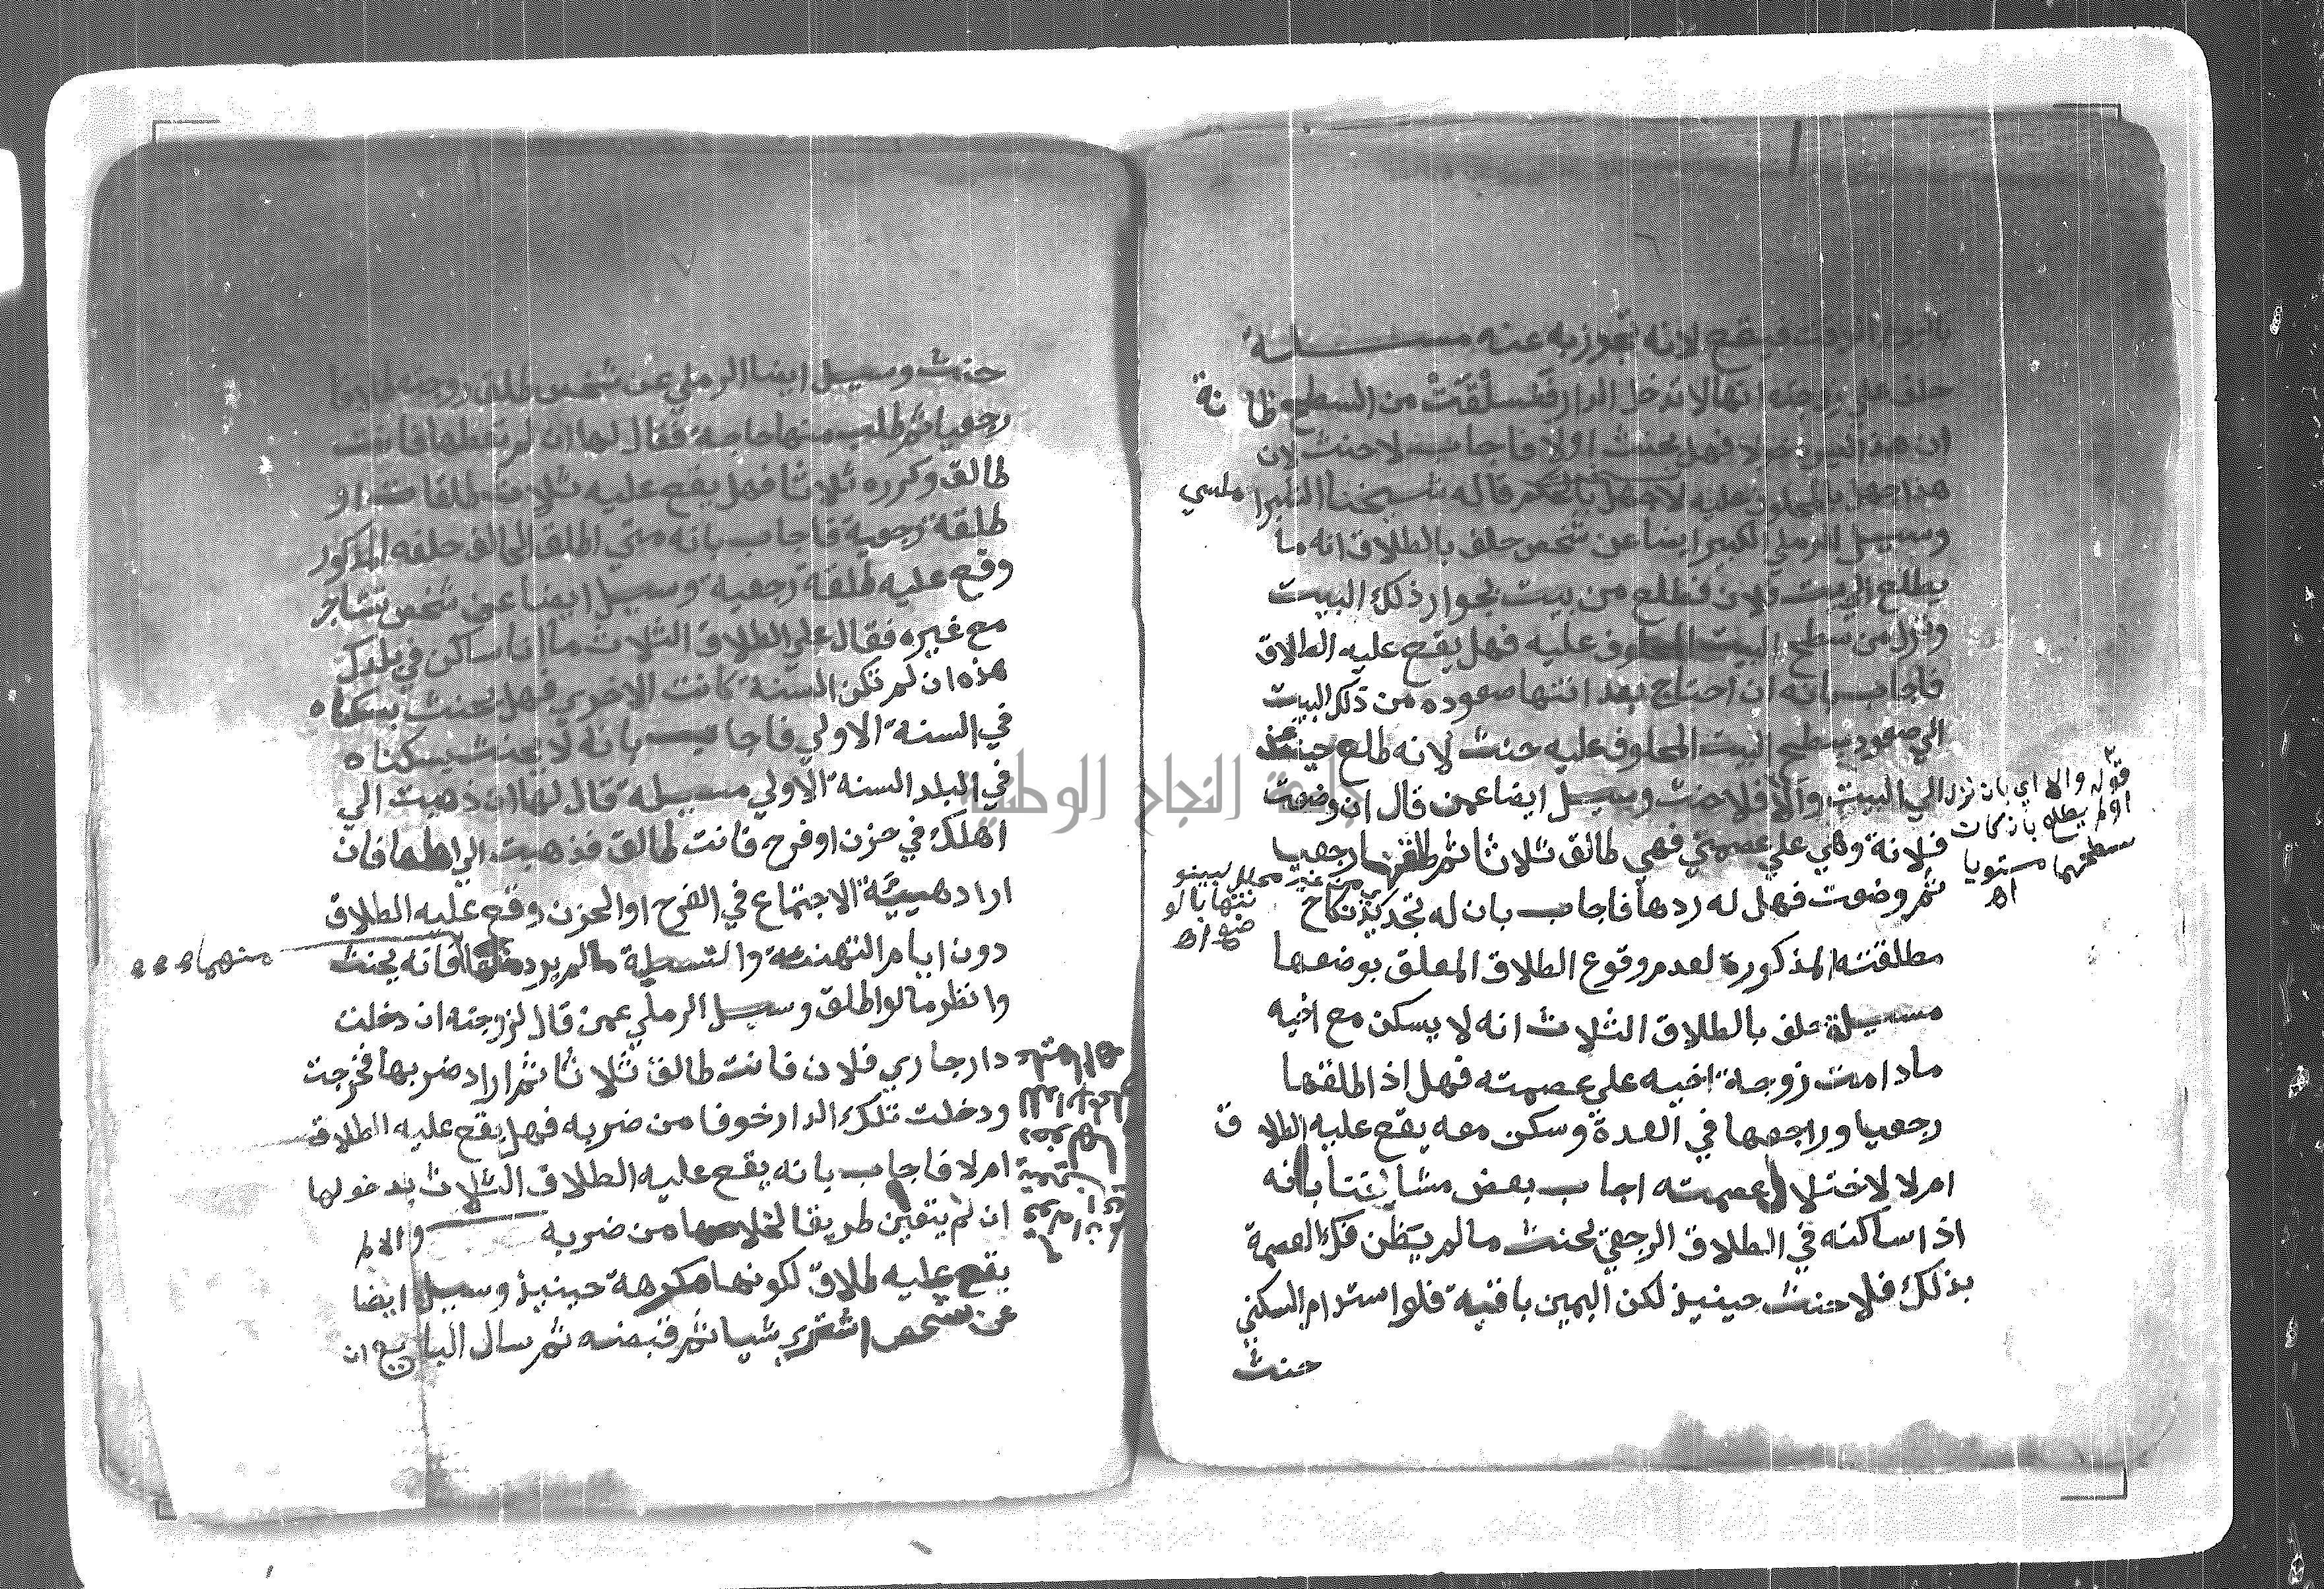 فيقع لانه تجوز به عنه مسئلة
حلف على زوجته انها لا تدخل الدار فتسلقت من السطح ظانة
ان هذا ليس دخولا فهل يحنث اولا فاجاب لا حنث لان
هذا جهل بالمحلوف عليه لا جهل بالحكم قاله شيخنا الشبراملسي
وسيل الرملي الكبير ايضا عن شخص حلف بالطلاق انه ما
يطلع الي بيت فلان فطلع من بيت بجوار ذلك البيت
ونزل من سطح البيت المحلوف عليه فهل يقع عليه الطلاق
فاجاب بانه ان احتاج بعد انتها صعوده من ذلك البيت
الي صعود سطح البيت المحلوف عليه حنث لانه طلع حينئذ
الي البيت والا فلا حنث وسيل ايضا عمن قال ان وضعت
فلانة وهي علي عصمتي فهي طالق ثلاثا ثم طلقها رجعيا
ثم وضعت فهل له ردها فاجاب بان له تجديد نكاح
مطلقته المذكورة لعدم وقوع الطلاق المعلق بوضعها
مسيلة حلف بالطلاق الثلاث انه لا يسكن مع اخيه
مادامت زوجة اخيه علي عصمته فهل اذ اطلقها
رجعيا وراجعها في العدة وسكن معه يقع عليه الطلاق
ام لا لاختلال عصمته اجاب بعض مشايخنا بانه
اذا ساكنه في الطلاق الرجعي يحنث مالم يظن فك العصمة
بذلك فلا حنث حينيذ لكن اليمين باقية فلو استدام السكني
حنث
قوله والا اي بان نزل
او لم يطلع بان كانت
سطحهما مستويا
اه
من غير محلل لبينو
نتها بالو
ضع اه
حنث وسيل ايضا الرملي عن شخص طلق زوجته طلاقا
رجعيا ثم طلب منها حاجة فقال لها ان لم تعطها فانت
طالق وكرره ثلاثا فهل يقع عليه ثلاث طلقات او
طلقة رجعية فاجاب بانه متي اطلق الحالف حلفه المذكور
وقع عليه طلقة رجعية وسيل ايضا عن شخص تشاجر
مع غيره فقال علي الطلاق الثلاث ما انا ساكن في بلدك
هذه ان لم تكن السنة كانت الاخري فهل يحنث بسكناه
في السنة الاولي فاجاب بانه لا يحنث بسكناه
في البلد السنة الاولي مسيلة قال لها ان ذهبت الي
اهلك في حزن او فرح فانت طالق فذهبت الي اهلها فان
اراد هيئة الاجتماع في الفرح او الحزن وقع عليه الطلاق
دون ايام التهنئة والتسلية مالم يرد فانه يحنث
منهما
وانظر مالو اطلق وسيل الرملي عمن قال لزوجته ان دخلت
دار جاري فلان فانت طالق ثلاثا ثم اراد ضربها فخرجت
ودخلت تلك الدار خوفا من ضربه فهل يقع عليه الطلاق
ام لا فاجاب بانه يقع عليه الطلاق الثلاث بدخولها
ان لم يتعين طريقا لخلاصها من ضربه والا لم
يقع عليه طلاق لكونها مكرهة حينيذ وسيل ايضا
عن شخص اشتري شيا ثم قبضه ثم سال البايع ان
جامعة النجاح الوطنية